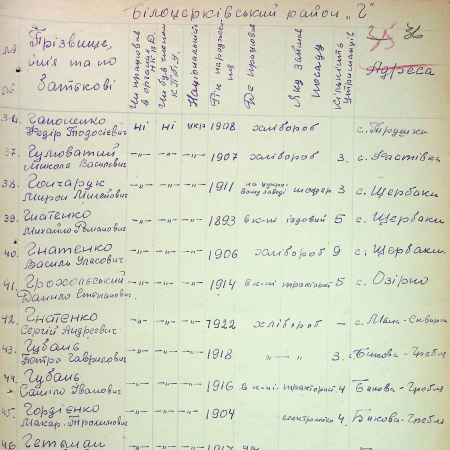 Білоцерківський район „Г"
36
№№ Прізвище, ім'я та по батькові Чи працював в органах Н.К.В.Д. Чи був членом К.П./б/У. Національність Рік народження Де працював Яку займав посаду Кількість утриманців Адреса
36. Гапоненко Федір Тодосієвич ні ні укр. 1908 хлібороб с. Трушки
37. Гуловатий Микола Васильович -"- -"- -"- 1907 хлібороб 3. с. Фастівка
38. Гончарук Мирон Михейович -"- -"- -"- 1911 на цукровому заводі шофер 3 с. Щербаки
39. Гнатенко Михайло Романович -"- -"- -"- 1893 в к-пі їздовий 5 с. Щербаки
40. Гнатенко Василь Уласович -"- -"- -"- 1906 хлібороб 9 с. Щербаки
41. Грохольський Данило Степанович. -"- -"- -"- 1914 в к-пі тракторист 5 с. Озірно
42. Гнатенко Сергій Андреєвич -"- -"- -"- 1922 хлібороб – с. Мала-Сквирка
43. Губань Петро Гаврилович -"- -"- -"- 1918 -"- 3. Бикова-Гребля
44. Губань Самійло Іванович -"- -"- -"- 1916 в к-пі. тракторист 4 Бикова-Гребля
45. Гордієнко Макар-Трохимович -"- -"- -"- 1904 електромонтер 4. Бикова-Гребля
46. Гетьман